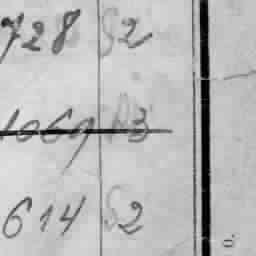 728 82
1069 13
614 82